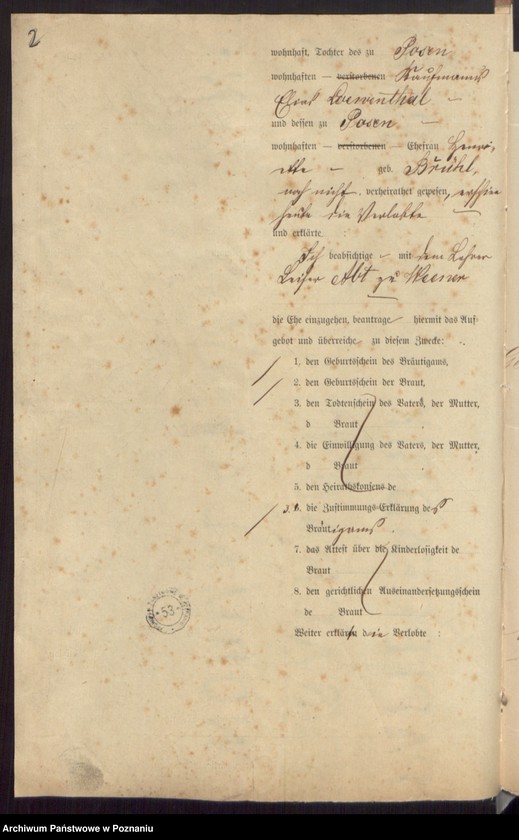 2
wohnhaft, Tochter des zu Posen
wohnhaften — verstorbenen Kaufmanns
Elias Loewenthal —
und dessen zu Posen —
wohnhaften — verstorbenen — Ehefrau Henri-
ette — geb. Brühl,
noch nicht verheirathet gewesen, erschien
heute die Verlobte —
und erklärte :
Ich beabsichtige — mit dem Lehrer
Leiser Abt zu Weener
—
die Ehe einzugehen, beantrage hiermit das Auf-
gebot und überreiche zu diesem Zwecke:
1. den Geburtsschein des Bräutigams,
2. den Geburtsschein der Braut,
3. den Todtenschein des Vaters, der Mutter,
d Braut
4. die Einwilligung des Vaters, der Mutter,
d Braut
5. den Heirathskonsens de
3. 6. die Zustimmungs-Erklärung des
Bräutigams.
7. das Attest über die Kinderlosigkeit de
Braut
8. den gerichtlichen Auseinandersetzungsschein
de Braut
Weiter erklärte die Verlobte :
53
Archiwum Państwowe w Poznaniu